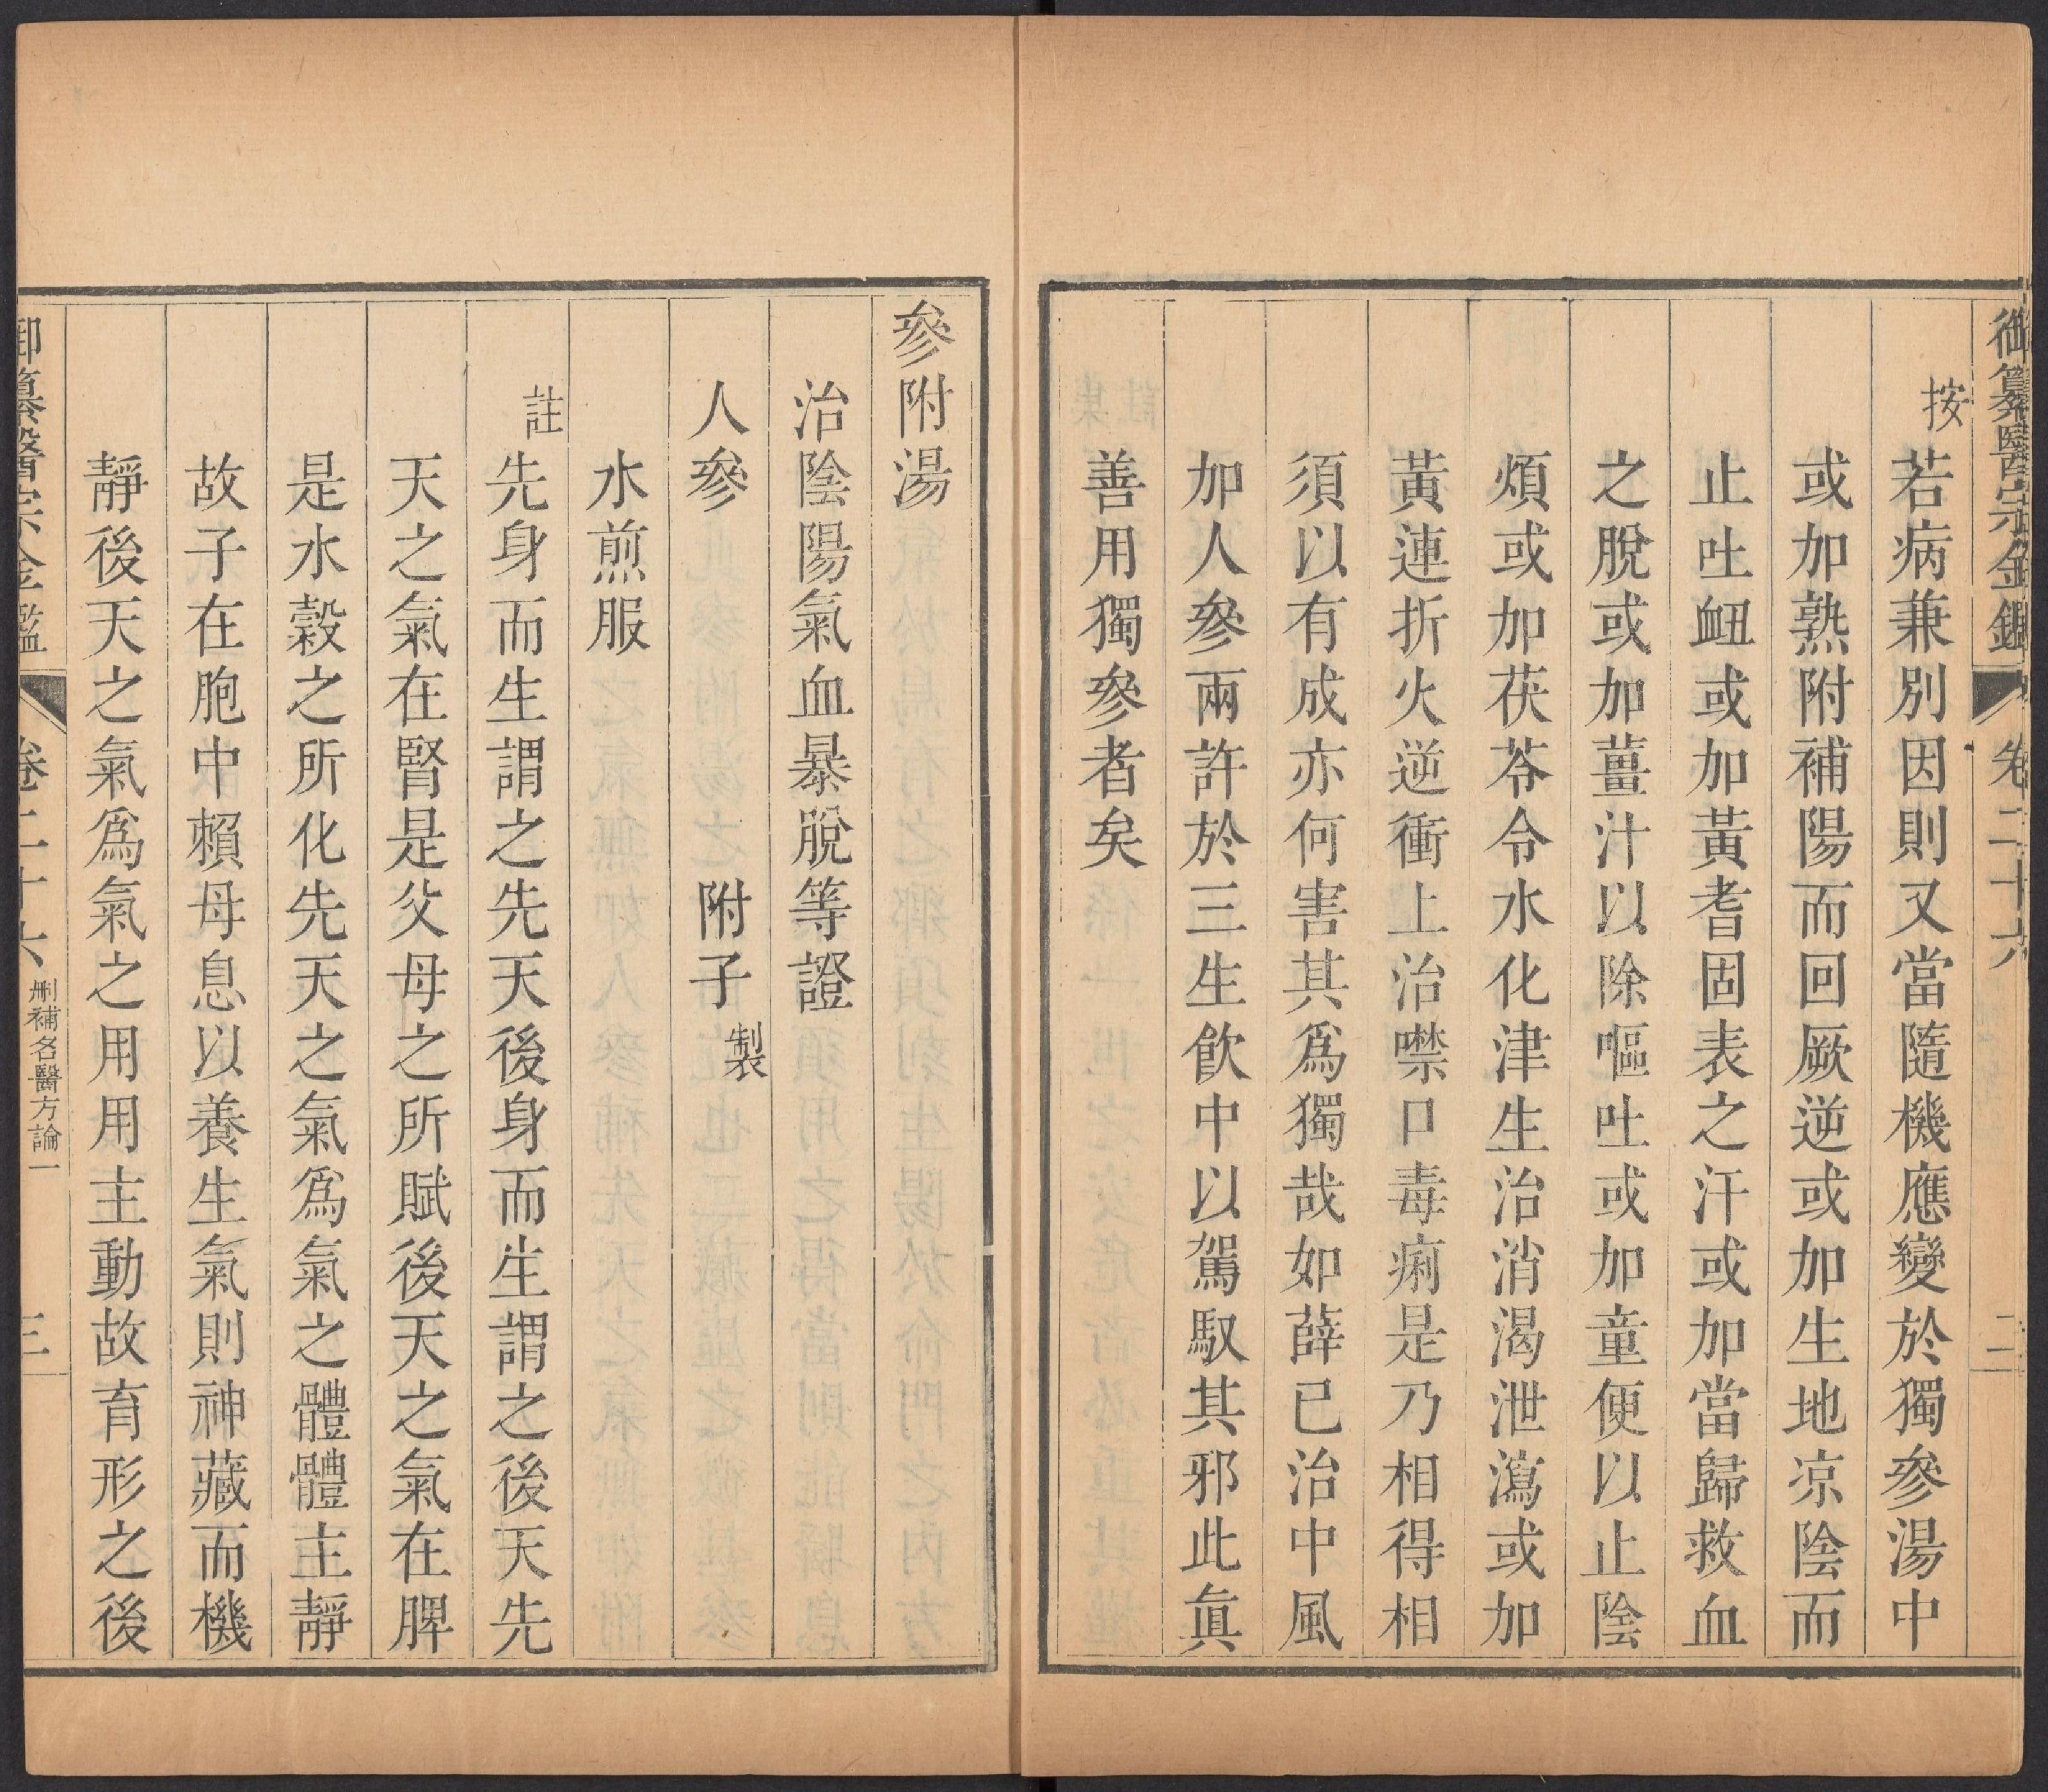 御纂醫宗金鑑 卷二十六 二
按若病兼別因則又當隨機應變於獨參湯中
或加熟附補陽而回厥逆或加生地凉陰而
止吐衄或加黃耆固表之汗或加當歸救血
之脫或加薑汁以除嘔吐或加童便以止陰
煩或加茯苓令水化津生治消渴泄瀉或加
黃連折火逆衝上治噤口毒痢是乃相得相
須以有成亦何害其爲獨哉如薛已治中風
加人參兩許於三生飮中以駕馭其邪此眞
善用獨參者矣
參附湯
治陰陽氣血暴脫等證
人參 附子製
水煎服
註先身而生謂之先天後身而生謂之後天先
天之氣在腎是父母之所賦後天之氣在脾
是水穀之所化先天之氣爲氣之體體主靜
故子在胞中賴母息以養生氣則神藏而機
靜後天之氣爲氣之用用主動故育形之後
御纂醫宗金鑑 卷二十六 刪補名醫方論一 三